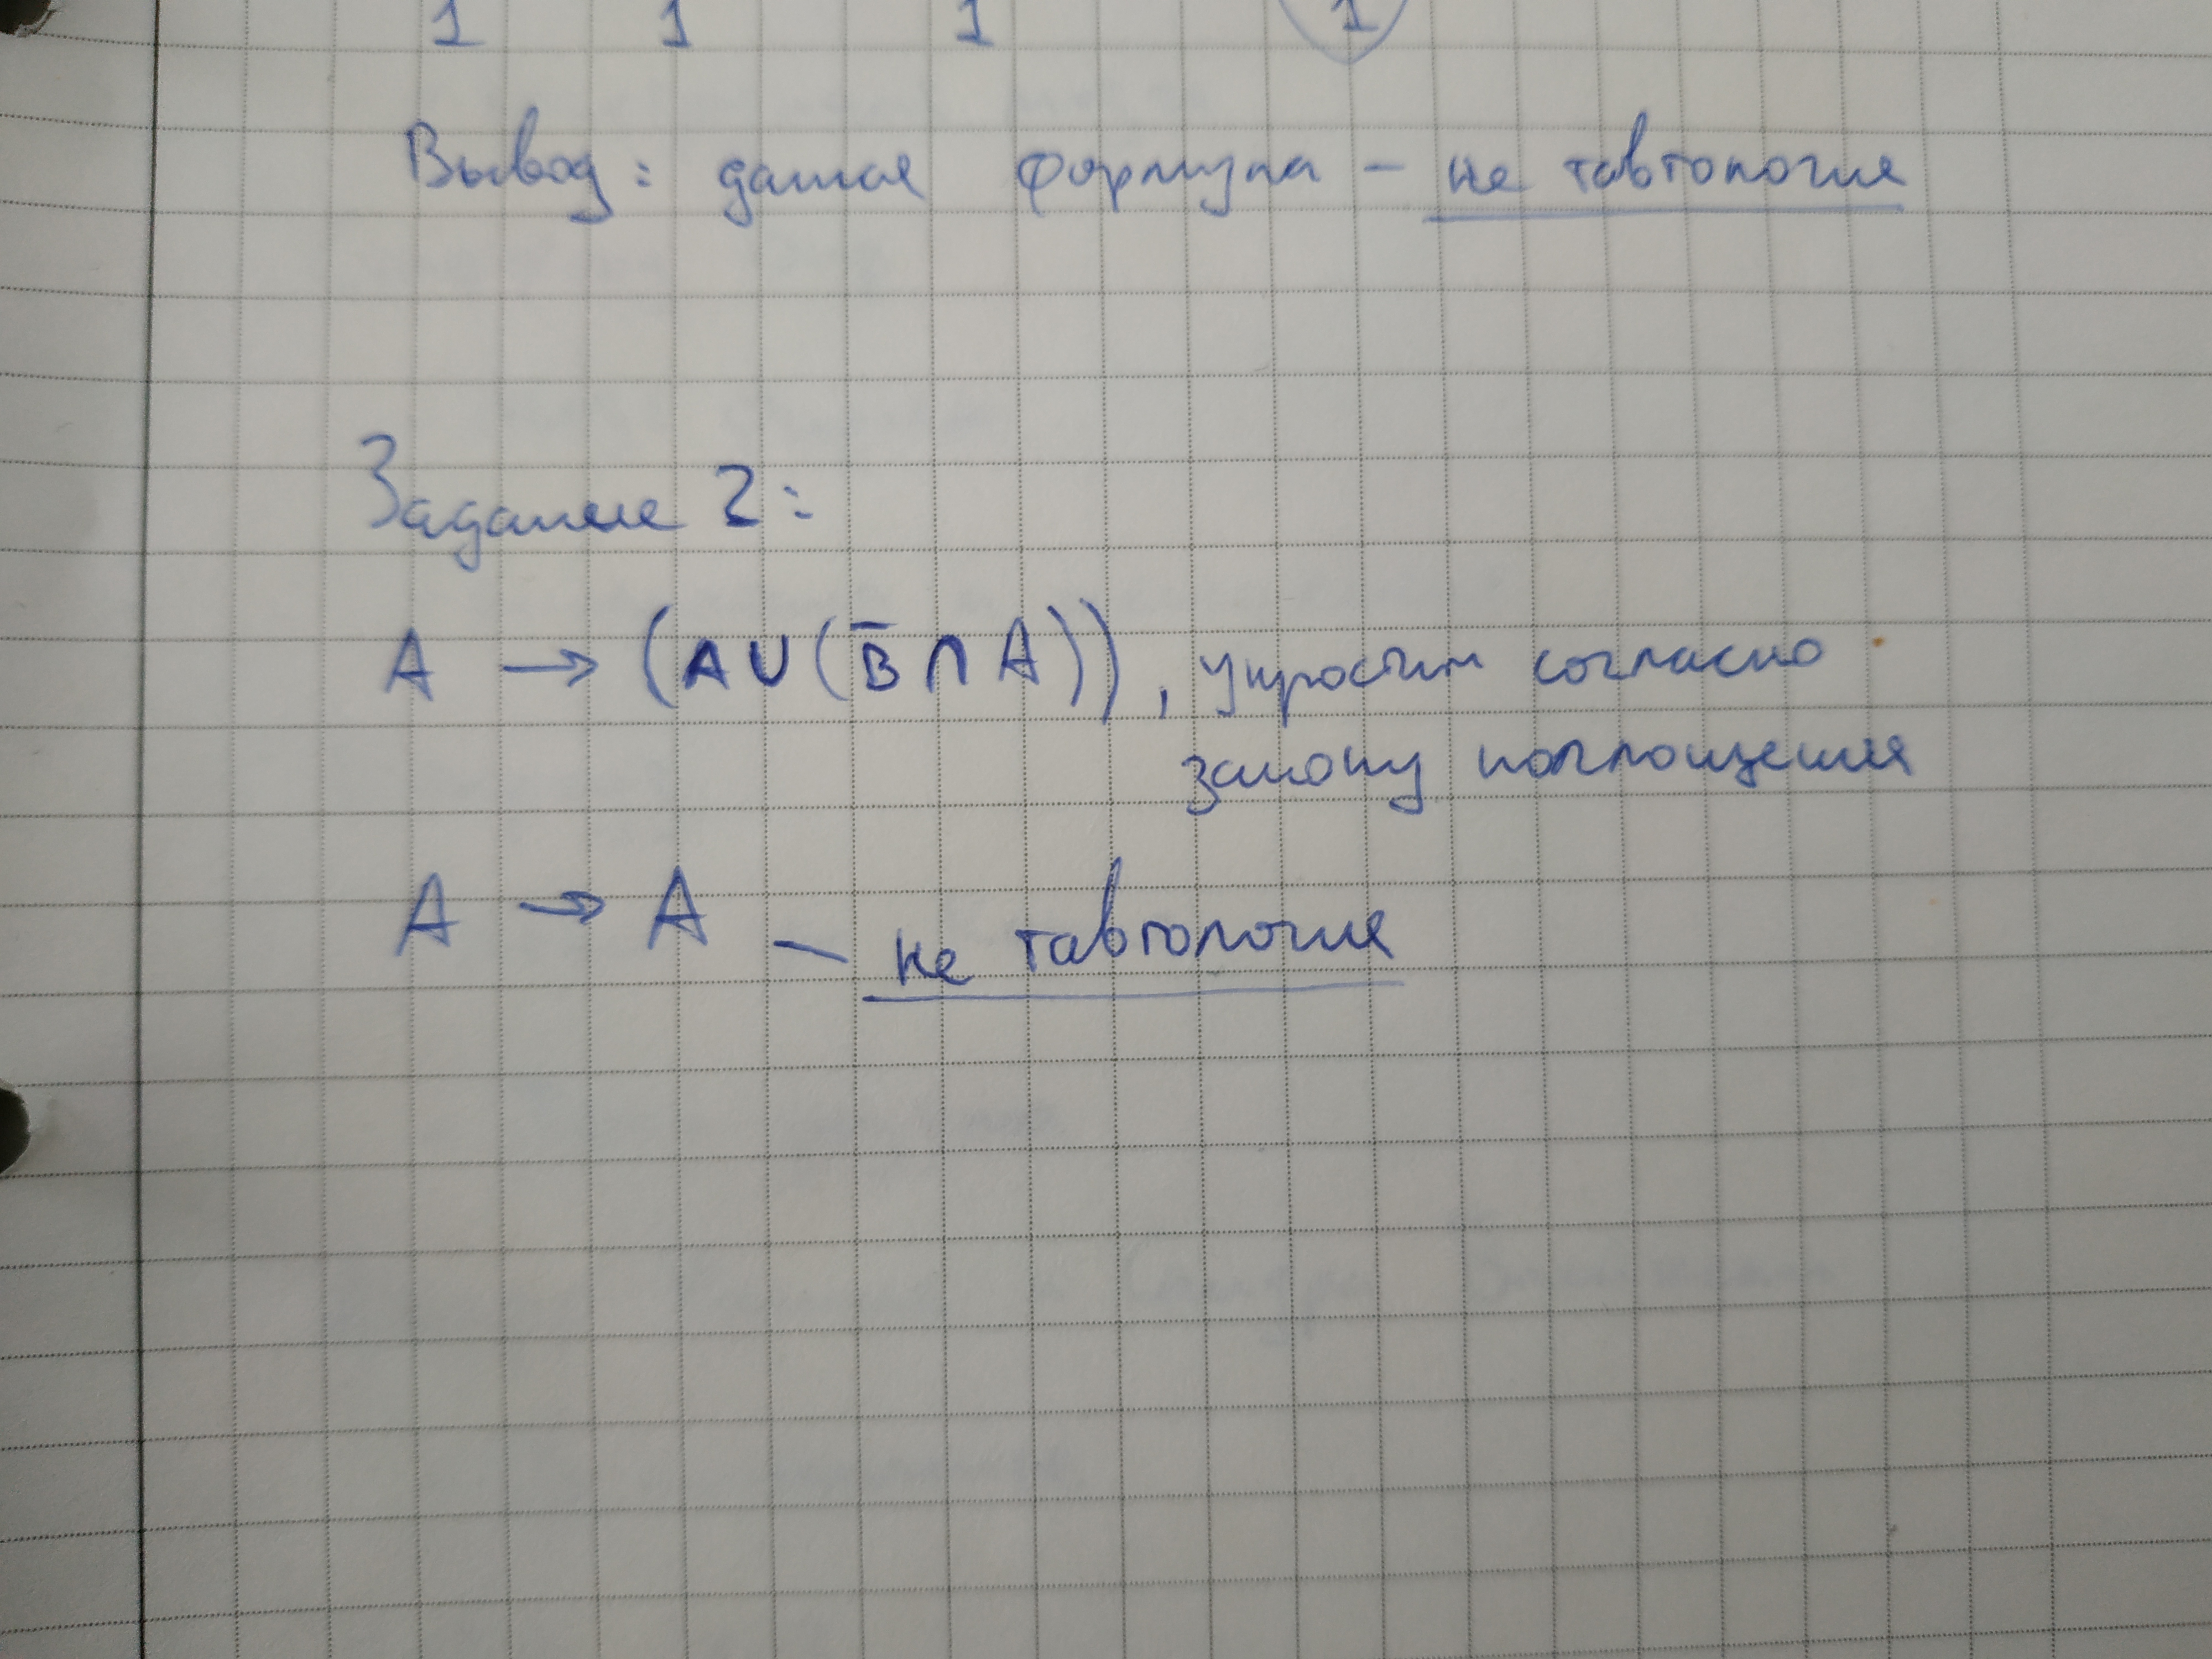 1 1 1 1
Вывод: данная формула – не тавтология
Задание 2:
A → (A ∪ (B̅ ∩ A)), упростим согласно
закону поглощения
A → A – не тавтология